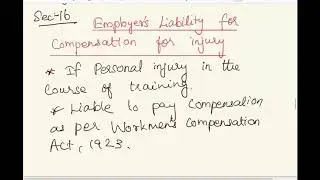 Sec-16
Employer's Liability for
Compensation for injury
* If Personal injury in the
course of training.
* Liable to pay Compensation
as per Workmen's Compensation
Act, 1923.